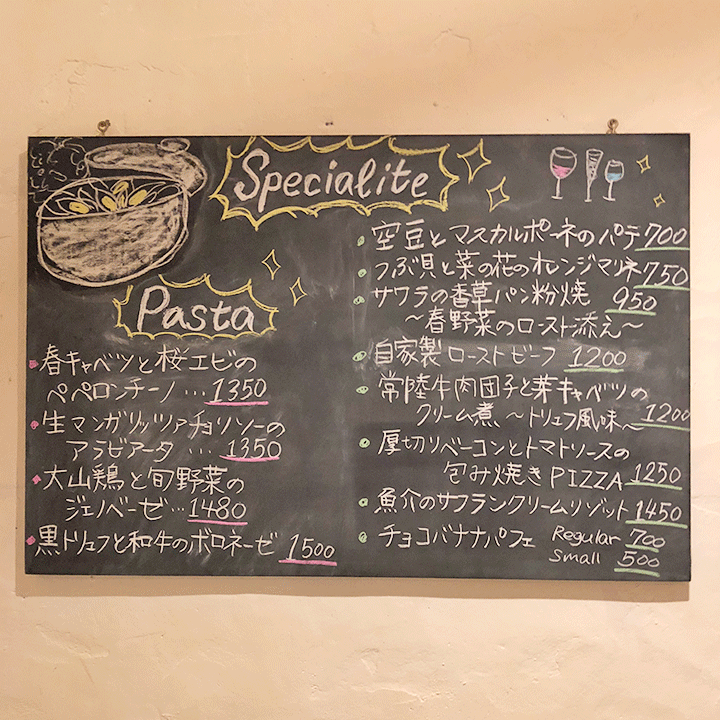 Specialite
Pasta
春キャベツと桜エビの
ペペロンチーノ…1350
生マンガリッツァチョリソーの
アラビアータ…1350
大山鶏と旬野菜の
ジェノベーゼ…1480
黒トリュフと和牛のボロネーゼ 1500
空豆とマスカルポーネのパテ 700
つぶ貝と菜の花のオレンジマリネ 750
サワラの香草パン粉焼 950
〜春野菜のロースト添え〜
自家製ローストビーフ 1200
常陸牛肉団子と芽キャベツの
クリーム煮 〜トリュフ風味〜 1200
厚切りベーコンとトマトソースの
包み焼きPIZZA 1250
魚介のサフランクリームリゾット 1450
チョコバナナパフェ Regular 700
Small 500